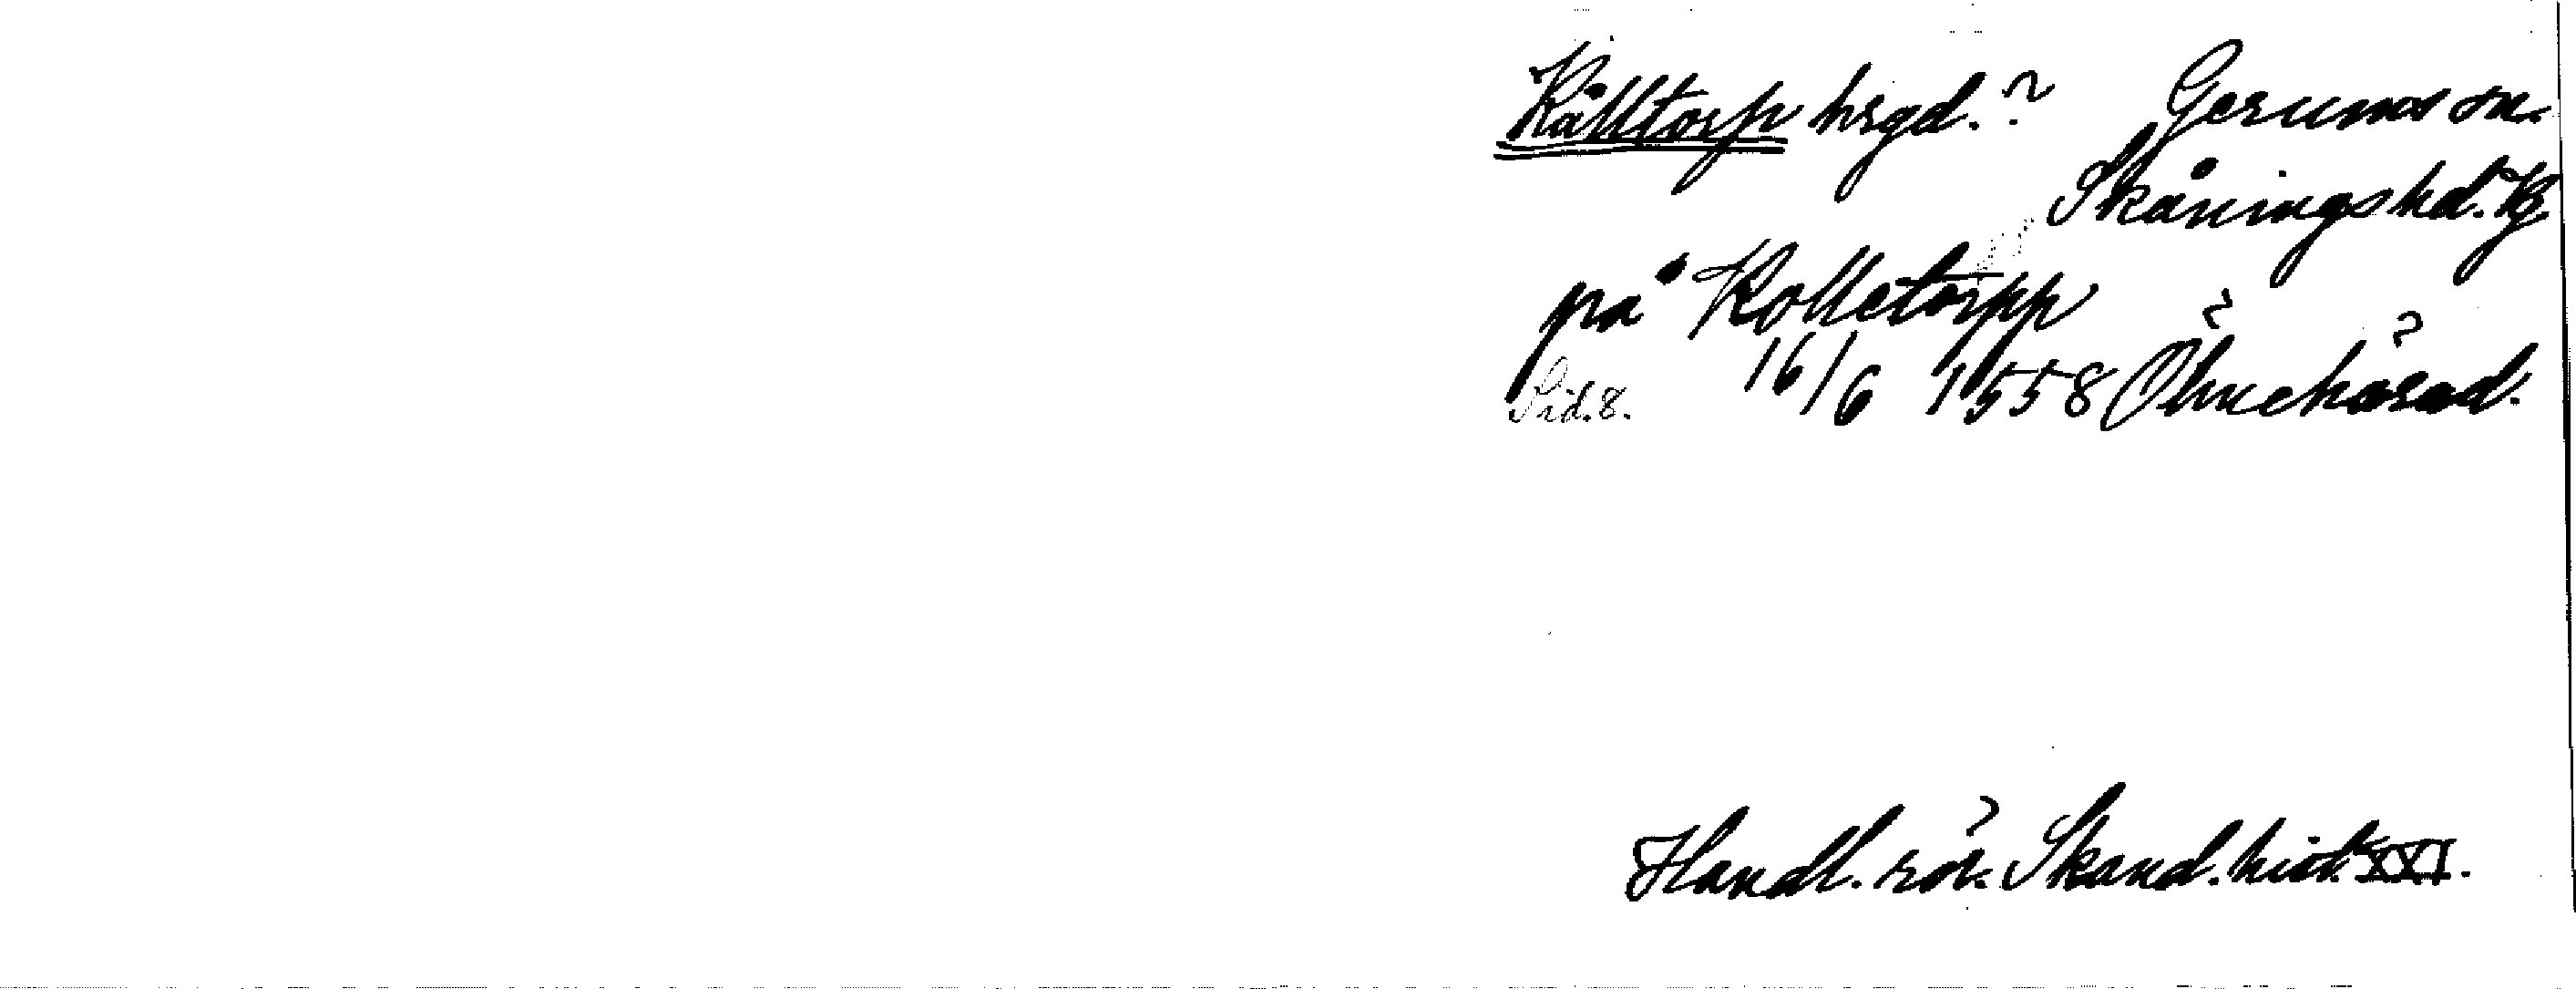 Källtorp hrgd.? Gerums sn.
Skånings hd. Vg.
på Kolletorpp
Sid. 8. 16/6 1558 Öhnehärad.
Handl. rör. Skand. hist. XXI.